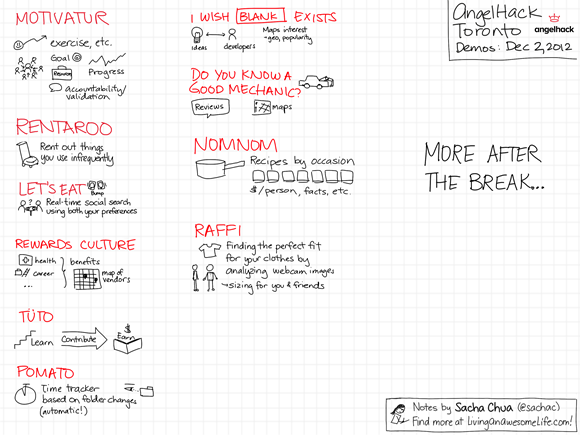 MOTIVATUR
exercise, etc.
Goal
Reward
Progress
accountability/
validation
RENTAROO
Rent out things
you use infrequently
LET'S EAT
Bump
Real-time social search
using both your preferences
REWARDS CULTURE
health
benefits
career
...
map of
vendors
TÜTO
Learn
Contribute
$
Earn
POMATO
Time tracker
based on folder changes
(automatic!)
I WISH BLANK EXISTS
ideas
developers
Maps interest
-geo, popularity
DO YOU KNOW A
GOOD MECHANIC?
Reviews
maps
NOMNOM
Recipes by occasion
$/person, facts, etc.
RAFFI
Finding the perfect fit
for your clothes by
analyzing webcam images
→sizing for you & friends
AngelHack
Toronto
angelhack
Demos: Dec 2, 2012
MORE AFTER
THE BREAK...
Notes by Sacha Chua (@sachac)
Find more at livinganawesomelife.com!